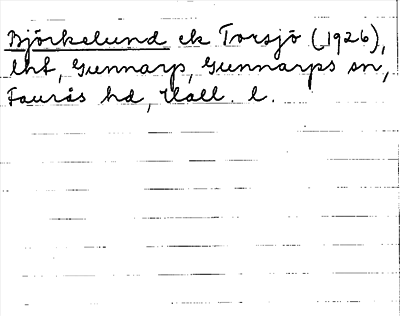 Björkelund ek Torsjö (1926),
lht, Gunnarp, Gunnarps sn,
Faurås hd, Hall. l.